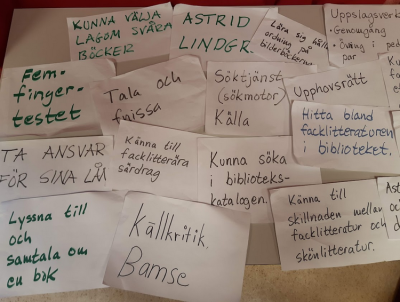 KUNNA VÄLJA
LAGOM SVÅRA
BÖCKER
ASTRID
LINDGR.
Lära sig hålla
ordning på
bilderböckerna
Uppslagsverk
• Genomgång
• Övning i
par
Fem-
finger-
testet
Tala och
Söktjänst
(sökmotor)
Källa
Upphovsrätt
Hitta bland
facklitteraturen
i biblioteket.
TA ANSVAR
FÖR SINA LÅN
Känna till
facklitterära
särdrag
Kunna söka
i biblioteks-
katalogen.
Känna till
skillnaden mellan
facklitteratur och
skönlitteratur.
Lyssna till
och
samtala om
en bok
Källkritik.
Bamse